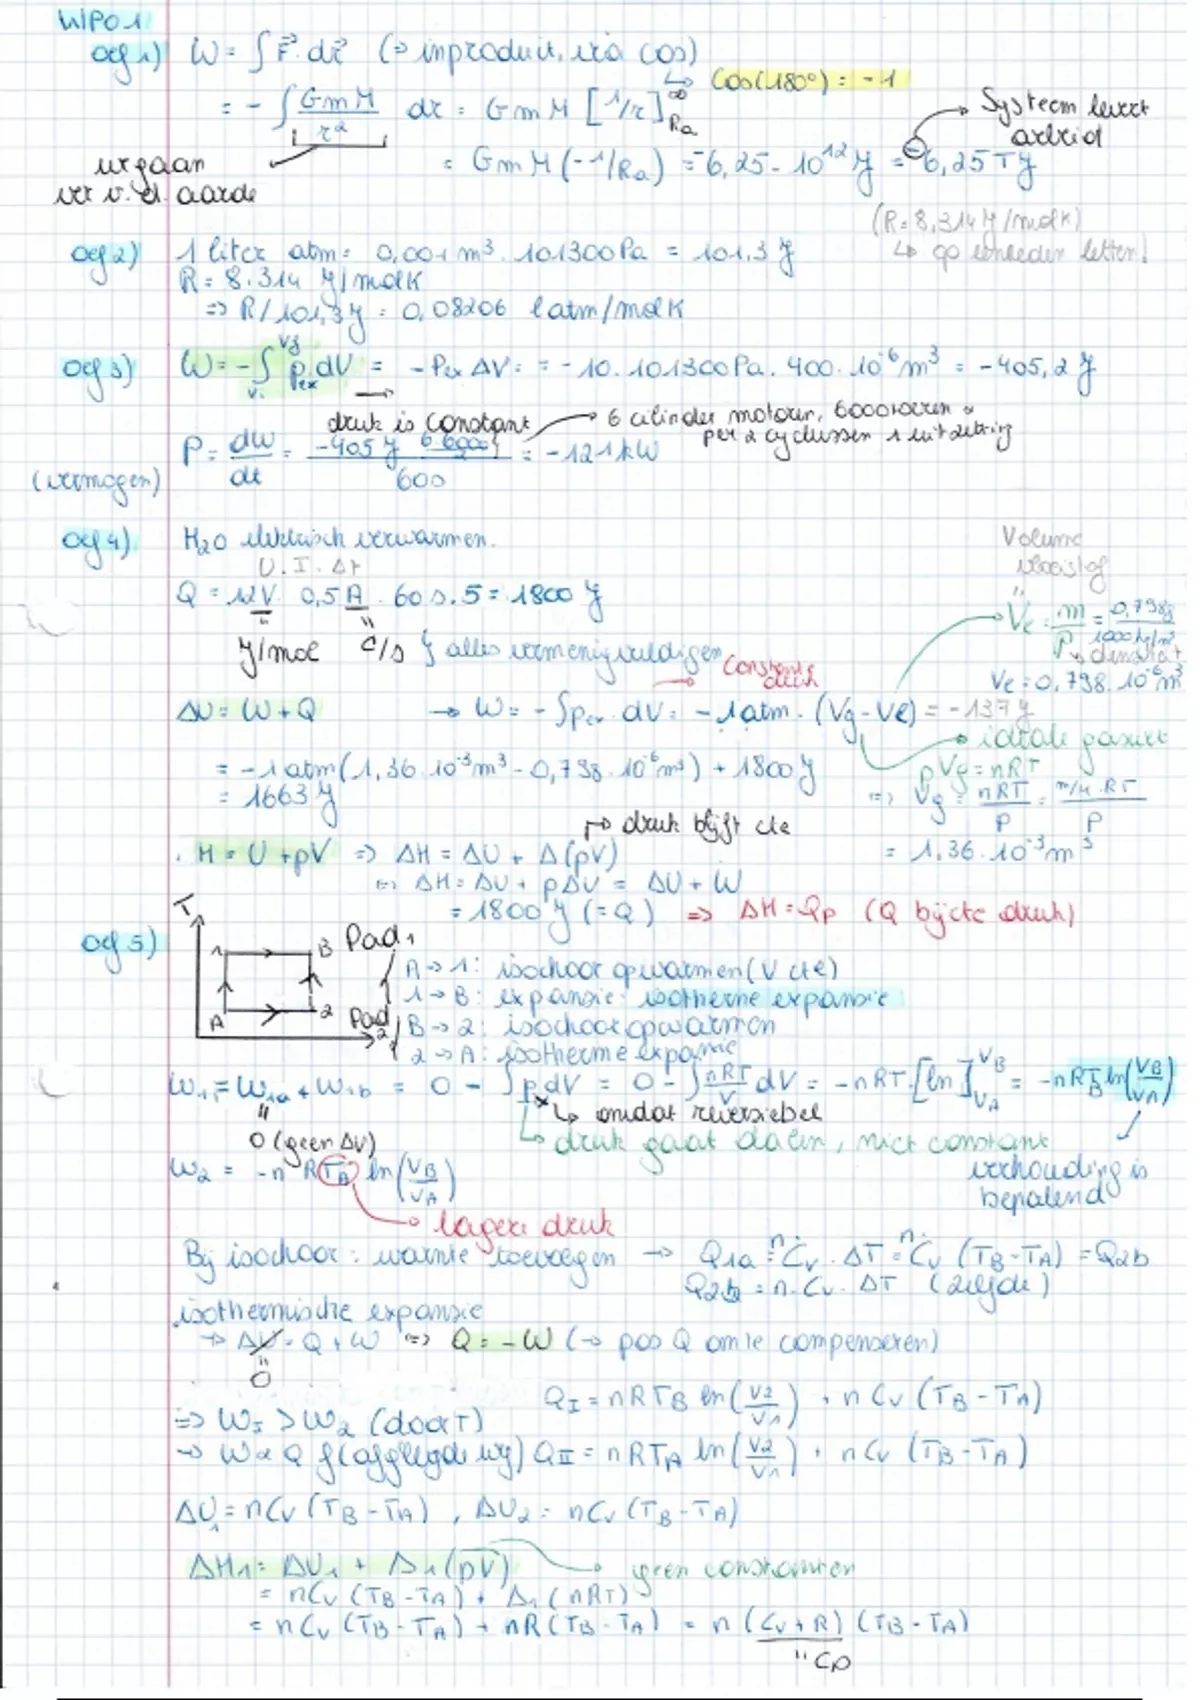 WPO 1
oef 1) W = ∫ F⃗. dr⃗ (→ inproduct, via cos)
↳ cos(180°) = -1
= - ∫ GmM/r² dr = GmM [1/r]^∞_Ra
→ Systeem levert arbeid
wegaan ver v. d. aarde
= GmM (-1/Ra) = -6,25 . 10¹² J = -6,25 TJ
(R = 8,314 J/molK)
↳ op eenheden letten!
oef 2) 1 liter atm = 0,001 m³ . 101300 Pa = 101,3 J
R = 8.314 J/molK
=> R/101,3 J = 0,08206 l atm/molK
oef 3) W = -∫ Pex dV = - Pex ΔV = = -10. 101300 Pa. 400. 10⁻⁶ m³ = -405,2 J
druk is constant
→ 6 cilinder motoren, 6000 toeren
per 2 cyclussen 1 uitzetting
P = dW/dt = -405 J 6 6000 / 600 = -121 kW
(vermogen)
oef 4) H₂O elektrisch verwarmen.
U . I . Δt
Q = 12 V. 0,5 A . 60 s . 5 = 1800 J
J/mol C/s } alles vermenigvuldigen
Volume vloeistof
"
Ve = m/ρ = 0,798g / 1000 kg/m³
↳ densiteit
Ve = 0,798. 10⁻⁶ m³
Constante druk
ΔU = W + Q → W = - ∫Pex . dV = -1 atm . (Vg - Ve) = -137 J
→ ideale gaswet
pVg = nRT
= -1 atm (1,36 . 10⁻³ m³ - 0,798 . 10⁻⁶ m³) + 1800 J
= 1663 J
=> Vg = nRT/P = m/M . RT / P
= 1,36 . 10⁻³ m³
→ druk blijft cte
. H = U + pV => ΔH = ΔU + Δ(pV)
<=> ΔH = ΔU + pΔV = ΔU + W
= 1800 J (= Q) => ΔH = Qp (Q bij cte druk)
oef 5) T
1 B Pad 1
A 2 Pad 2
A → 1: isochoor opwarmen (V cte)
1 → B: expansie: isotherme expansie
B → 2: isochoor opwarmen
2 → A: isotherme expansie
W₁ = W₁a + W₁b = 0 - ∫ Pex dV = 0 - ∫ nRT/V dV = -nRT.[ln]^VB_VA = -nRT_B ln(VB/VA)
"
0 (geen ΔV)
↳ omdat reversiebel
↳ druk gaat dalen, niet constant
verhouding is bepalend
W₂ = -n RT_A ln(VB/VA)
→ lagere druk
Bij isochoor: warmte toevoegen → Q1a = n. Cv . ΔT = n. Cv (TB - TA) = Q2b
Q2b = n. Cv . ΔT (zelfde)
isothermische expansie
→ ΔU = Q + W <=> Q = -W (→ pos Q om te compenseren)
"
0
Q_I = nRT_B ln(V2/V1) + n Cv (TB - TA)
=> W₁ > W₂ (door T)
→ W & Q f(afgelegde weg) Q_II = nRT_A ln(V2/V1) + n Cv (TB - TA)
ΔU₁ = nCv (TB - TA) , ΔU₂ = nCv (TB - TA)
ΔH₁ = ΔU₁ + Δ₁(pV) → geen constanten
= nCv (TB - TA) + Δ₁(nRT)
= nCv (TB - TA) + nR (TB - TA) = n (Cv + R) (TB - TA)
" Cp